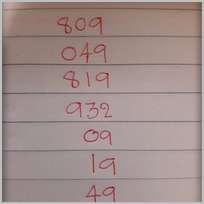 809
049
819
932
09
19
49